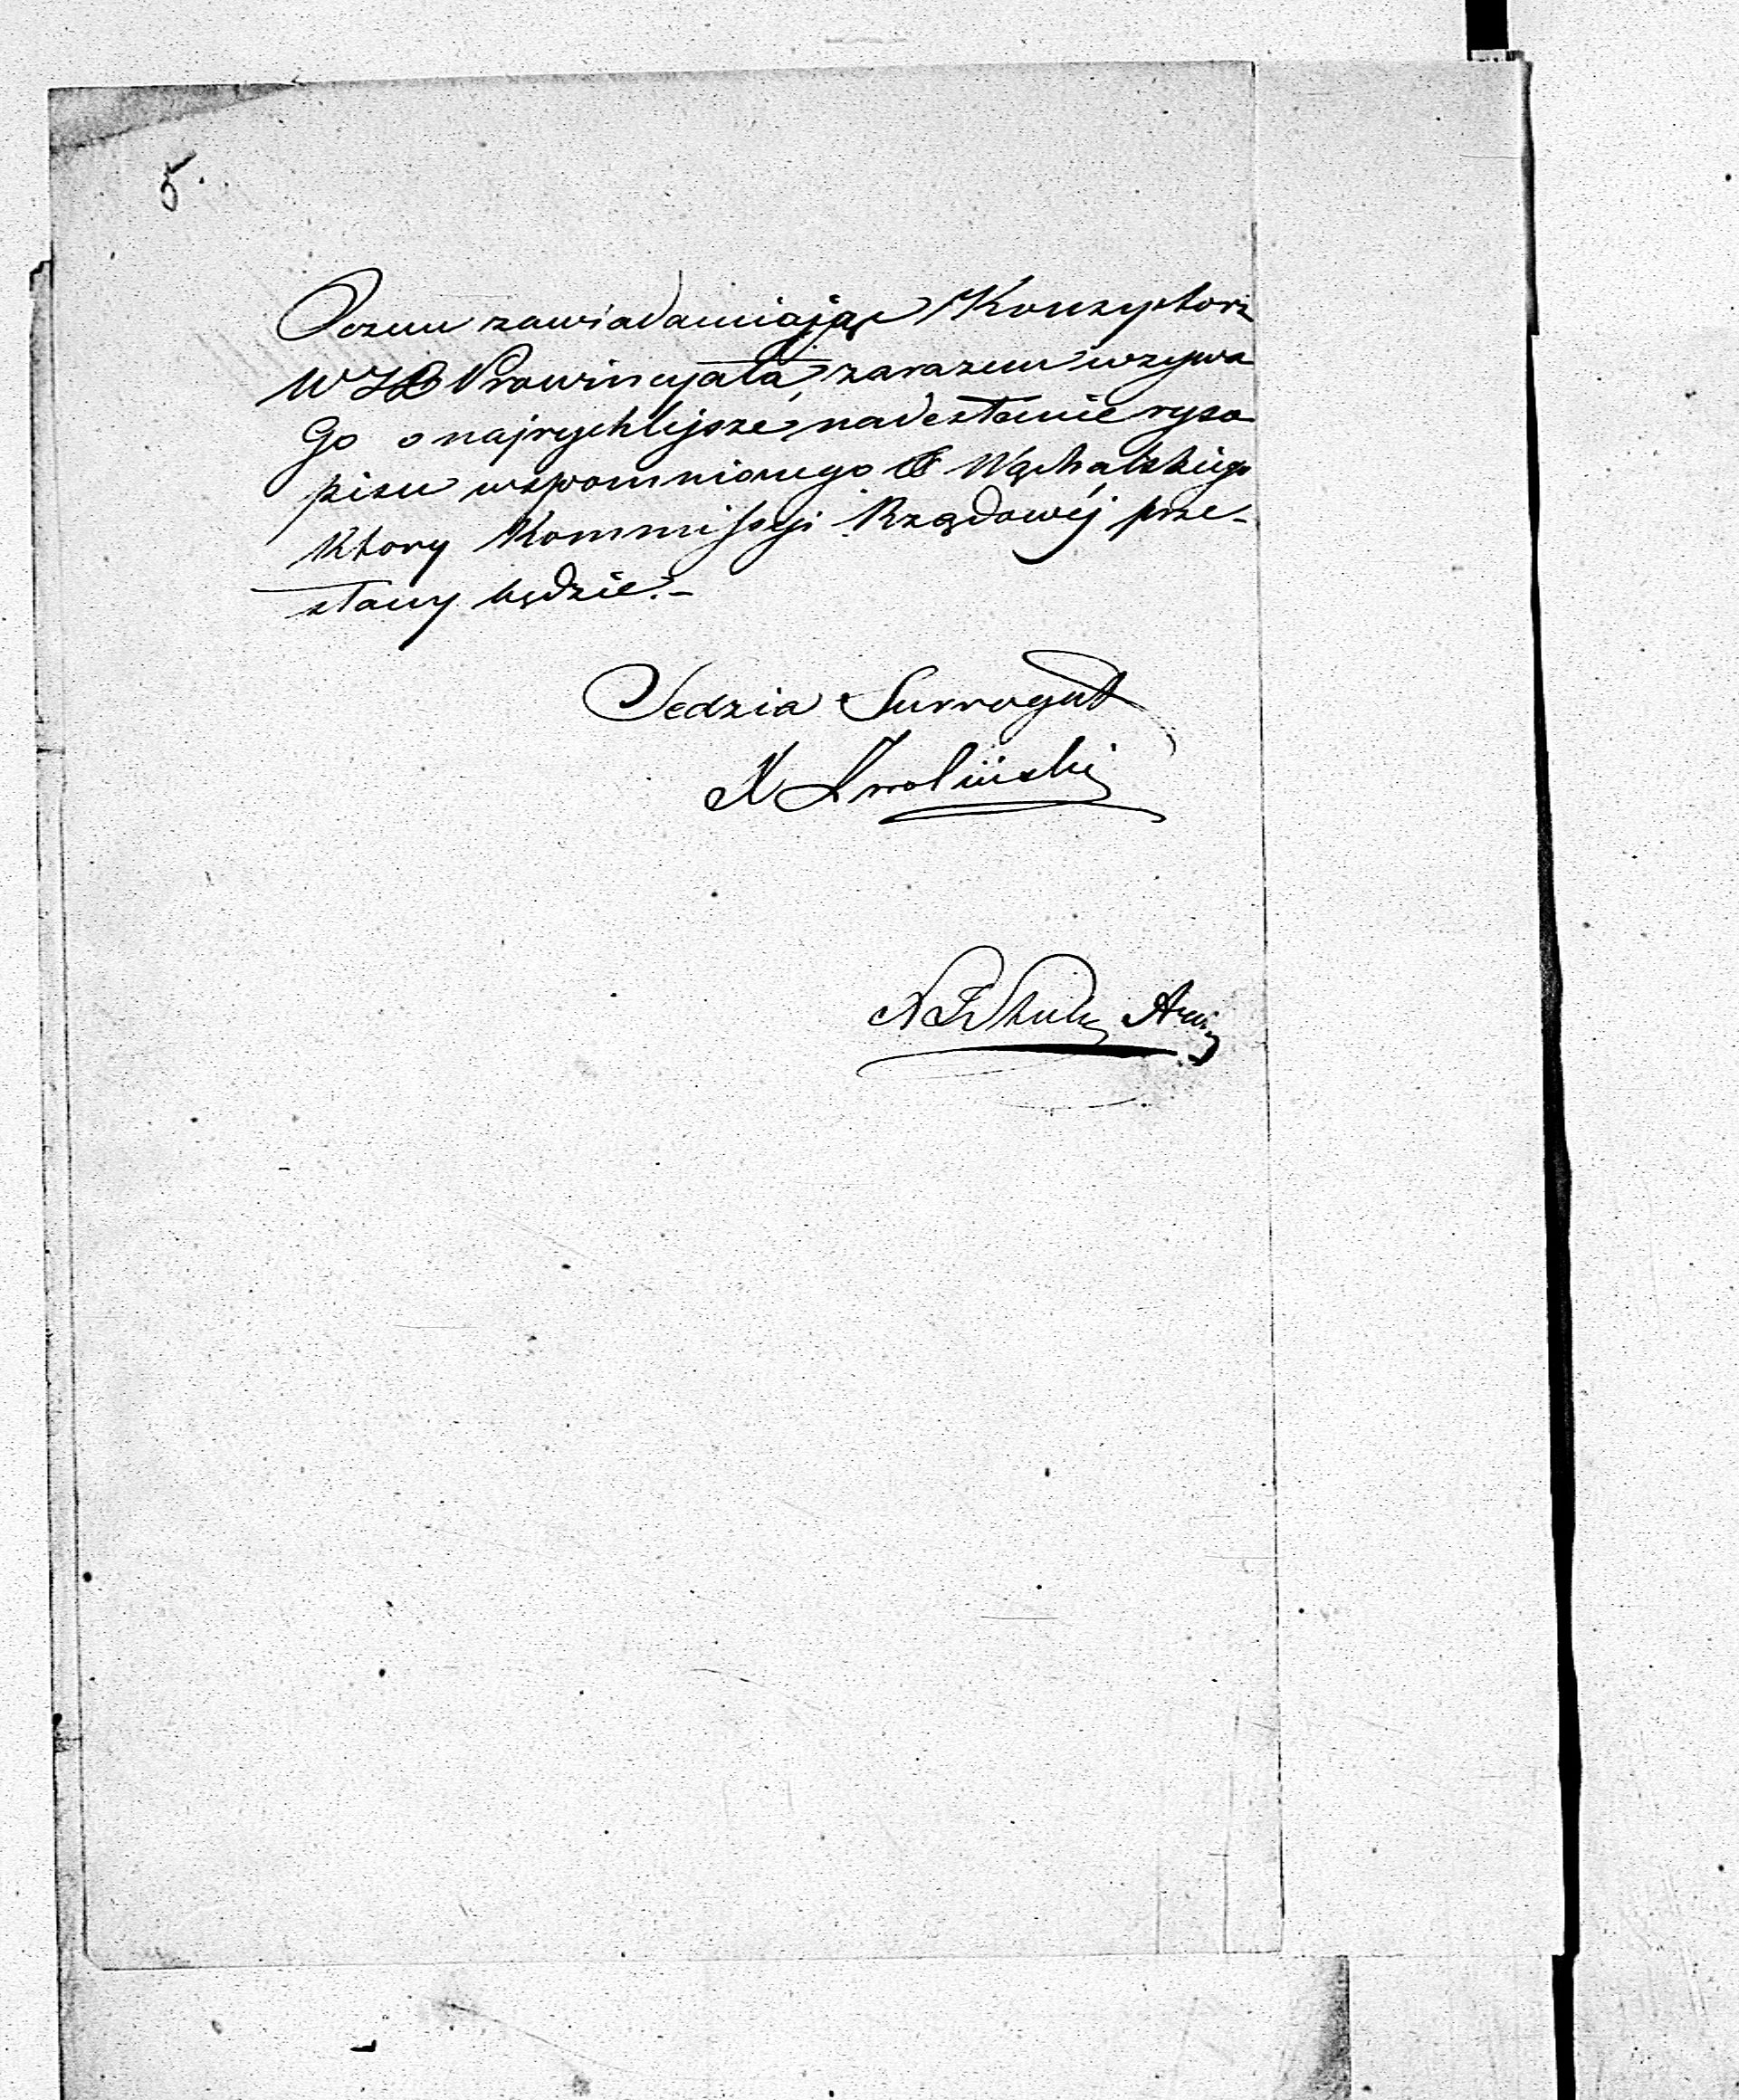 5.
O czem zawiadamiając Konsystorz
W JX Prowincyała, zarazem wzywa
Go o najrychlejsze nadesłanie ryso
pisu wspomnionego X Wąchalskiego
który Kommissyi Rządowéj prze-
słany będzie.-
Sędzia Surrogat
X Zwoliński
X